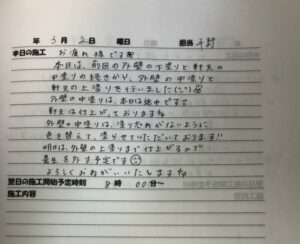 年 3 月 2 日 曜日 担当 平野
本日の施工 お疲れ様です
本日は、前回の外壁の下塗りと軒天の
中塗りの続きから、外壁の中塗りと
軒天の上塗りを行いました(^^)
外壁の中塗りは、本日は途中ですが
軒天は仕上がっております
外壁の中塗りは、塗り忘れがないように
色を替えて、塗らせていただいております!!
明日は、外壁の上塗りまで仕上がるので
養生を外す予定です
よろしくおねがいいたします
翌日の施工開始予定時刻 8 時 00 分〜
施工内容